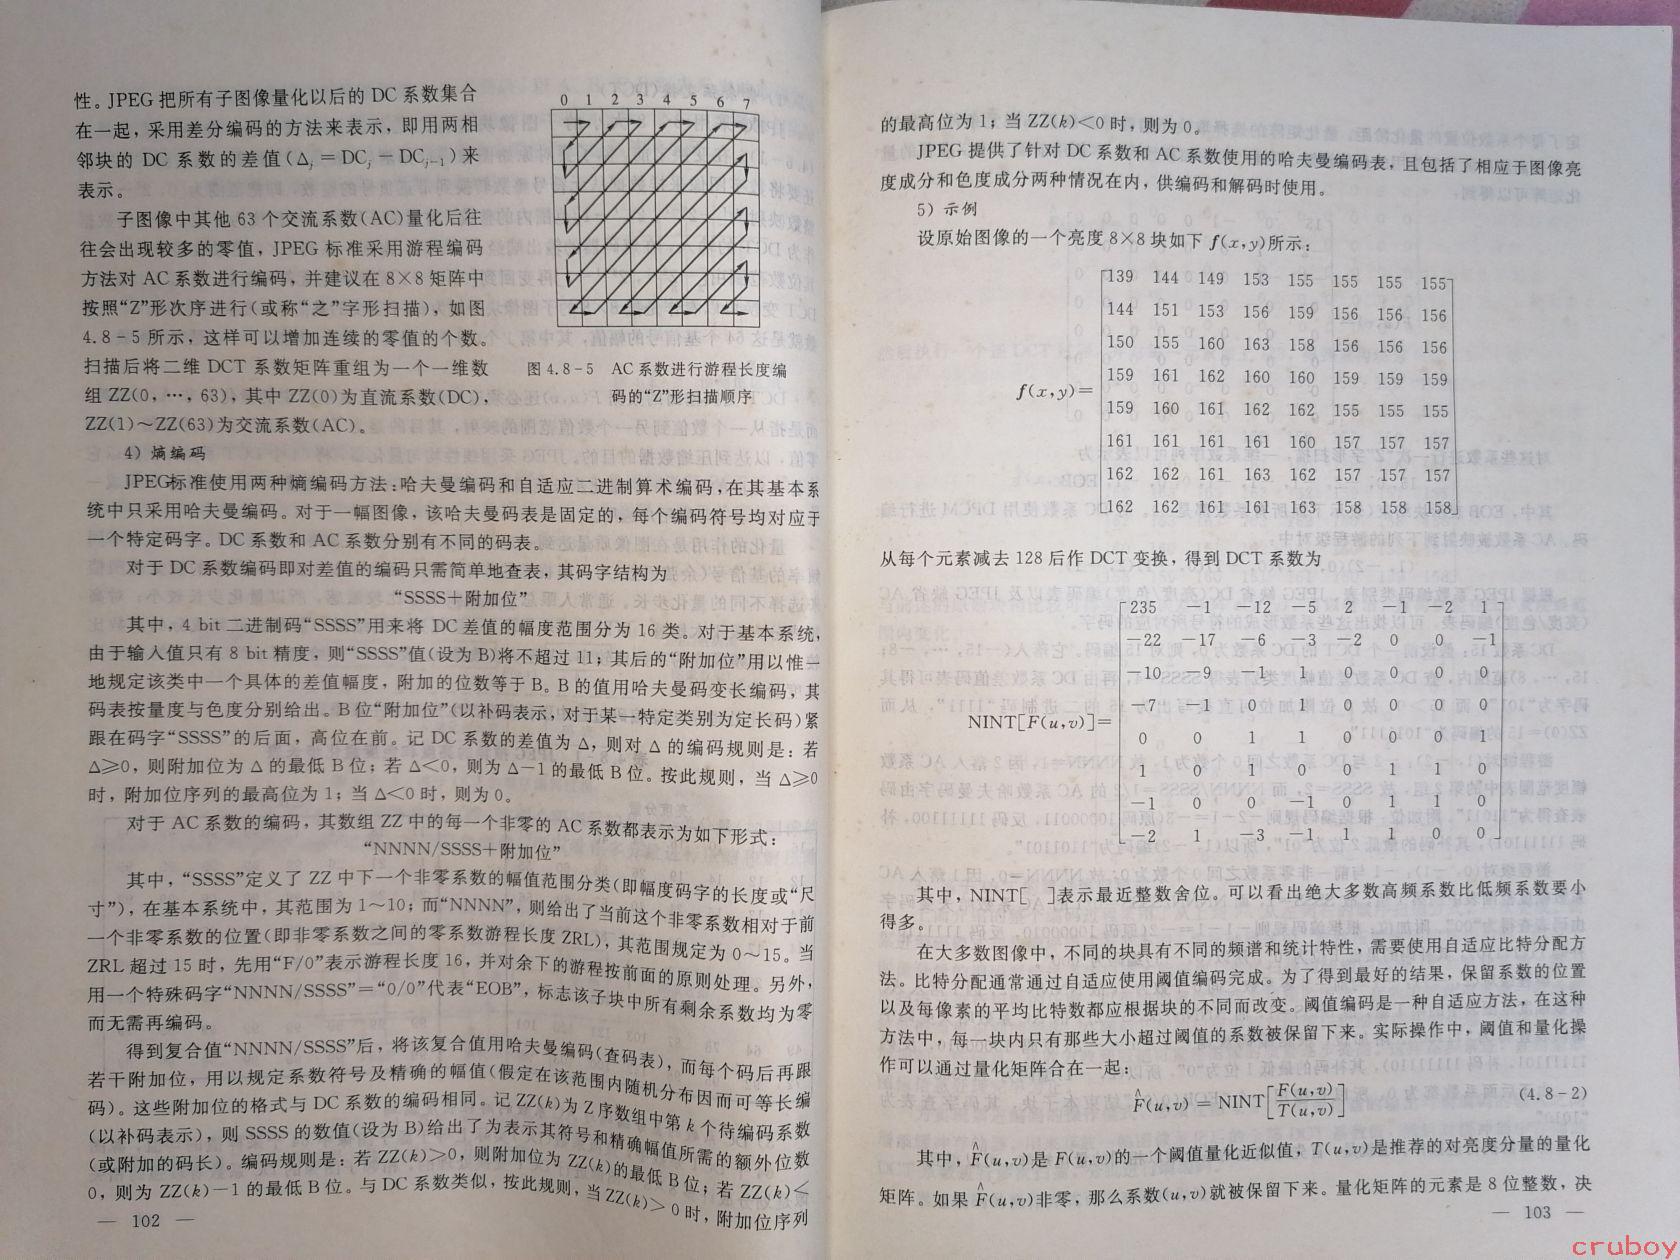 性。JPEG 把所有子图像量化以后的 DC 系数集合
在一起，采用差分编码的方法来表示，即用两相
邻块的 DC 系数的差值(Δⱼ = DCⱼ − DCⱼ₋₁)来
表示。
子图像中其他 63 个交流系数(AC)量化后往
往会出现较多的零值，JPEG 标准采用游程编码
方法对 AC 系数进行编码，并建议在 8×8 矩阵中
按照“Z”形次序进行(或称“之”字形扫描)，如图
4.8-5 所示，这样可以增加连续的零值的个数。
扫描后将二维 DCT 系数矩阵重组为一个一维数
组 ZZ(0，…，63)，其中 ZZ(0)为直流系数(DC)，
ZZ(1)～ZZ(63)为交流系数(AC)。
0 1 2 3 4 5 6 7
图 4.8-5 AC 系数进行游程长度编
码的“Z”形扫描顺序
4) 熵编码
JPEG标准使用两种熵编码方法：哈夫曼编码和自适应二进制算术编码，在其基本系
统中只采用哈夫曼编码。对于一幅图像，该哈夫曼码表是固定的，每个编码符号均对应于
一个特定码字。DC 系数和 AC 系数分别有不同的码表。
对于 DC 系数编码即对差值的编码只需简单地查表，其码字结构为
“SSSS+附加位”
其中，4 bit 二进制码“SSSS”用来将 DC 差值的幅度范围分为 16 类。对于基本系统，
由于输入值只有 8 bit 精度，则“SSSS”值(设为 B)将不超过 11；其后的“附加位”用以惟一
地规定该类中一个具体的差值幅度，附加的位数等于 B。B 的值用哈夫曼码变长编码，其
码表按量度与色度分别给出。B 位“附加位”(以补码表示，对于某一特定类别为定长码)紧
跟在码字“SSSS”的后面，高位在前。记 DC 系数的差值为 Δ，则对 Δ 的编码规则是：若
Δ≥0，则附加位为 Δ 的最低 B 位；若 Δ<0，则为 Δ−1 的最低 B 位。按此规则，当 Δ≥0
时，附加位序列的最高位为 1；当 Δ<0 时，则为 0。
对于 AC 系数的编码，其数组 ZZ 中的每一个非零的 AC 系数都表示为如下形式：
“NNNN/SSSS+附加位”
其中，“SSSS”定义了 ZZ 中下一个非零系数的幅值范围分类(即幅度码字的长度或“尺
寸”)，在基本系统中，其范围为 1～10；而“NNNN”，则给出了当前这个非零系数相对于前
一个非零系数的位置(即非零系数之间的零系数游程长度 ZRL)，其范围规定为 0～15。当
ZRL 超过 15 时，先用“F/0”表示游程长度 16，并对余下的游程按前面的原则处理。另外，
用一个特殊码字“NNNN/SSSS”=“0/0”代表“EOB”，标志该子块中所有剩余系数均为零
而无需再编码。
得到复合值“NNNN/SSSS”后，将该复合值用哈夫曼编码(查码表)，而每个码后再跟
若干附加位，用以规定系数符号及精确的幅值(假定在该范围内随机分布因而可等长编
码)。这些附加位的格式与 DC 系数的编码相同。记 ZZ(k)为 Z 序数组中第 k 个待编码系数
(以补码表示)，则 SSSS 的数值(设为 B)给出了为表示其符号和精确幅值所需的额外位数
(或附加的码长)。编码规则是：若 ZZ(k)>0，则附加位为 ZZ(k)的最低 B 位；若 ZZ(k)<
0，则为 ZZ(k)−1 的最低 B 位。与 DC 系数类似，按此规则，当 ZZ(k)>0 时，附加位序列
— 102 —
的最高位为 1；当 ZZ(k)<0 时，则为 0。
JPEG 提供了针对 DC 系数和 AC 系数使用的哈夫曼编码表，且包括了相应于图像亮
度成分和色度成分两种情况在内，供编码和解码时使用。
5) 示例
设原始图像的一个亮度 8×8 块如下 f(x,y)所示：
139 144 149 153 155 155 155 155
144 151 153 156 159 156 156 156
150 155 160 163 158 156 156 156
f(x,y)= 159 161 162 160 160 159 159 159
159 160 161 162 162 155 155 155
161 161 161 161 160 157 157 157
162 162 161 163 162 157 157 157
162 162 161 161 163 158 158 158
从每个元素减去 128 后作 DCT 变换，得到 DCT 系数为
235 −1 −12 −5 2 −1 −2 1
−22 −17 −6 −3 −2 0 0 −1
−10 −9 −1 1 0 0 0 0
NINT[F(u,v)]= −7 −1 0 1 0 0 0 0
0 0 1 1 0 0 0 1
1 0 1 0 0 1 1 0
−1 0 0 −1 0 1 1 0
−2 1 −3 −1 1 1 0 0
其中，NINT[ ]表示最近整数舍位。可以看出绝大多数高频系数比低频系数要小
得多。
在大多数图像中，不同的块具有不同的频谱和统计特性，需要使用自适应比特分配方
法。比特分配通常通过自适应使用阈值编码完成。为了得到最好的结果，保留系数的位置
以及每像素的平均比特数都应根据块的不同而改变。阈值编码是一种自适应方法，在这种
方法中，每一块内只有那些大小超过阈值的系数被保留下来。实际操作中，阈值和量化操
作可以通过量化矩阵合在一起：
F̂(u,v) = NINT[F(u,v)/T(u,v)] (4.8-2)
其中，F̂(u,v)是 F(u,v)的一个阈值量化近似值，T(u,v)是推荐的对亮度分量的量化
矩阵。如果 F̂(u,v)非零，那么系数(u,v)就被保留下来。量化矩阵的元素是 8 位整数，决
— 103 —
cruboy